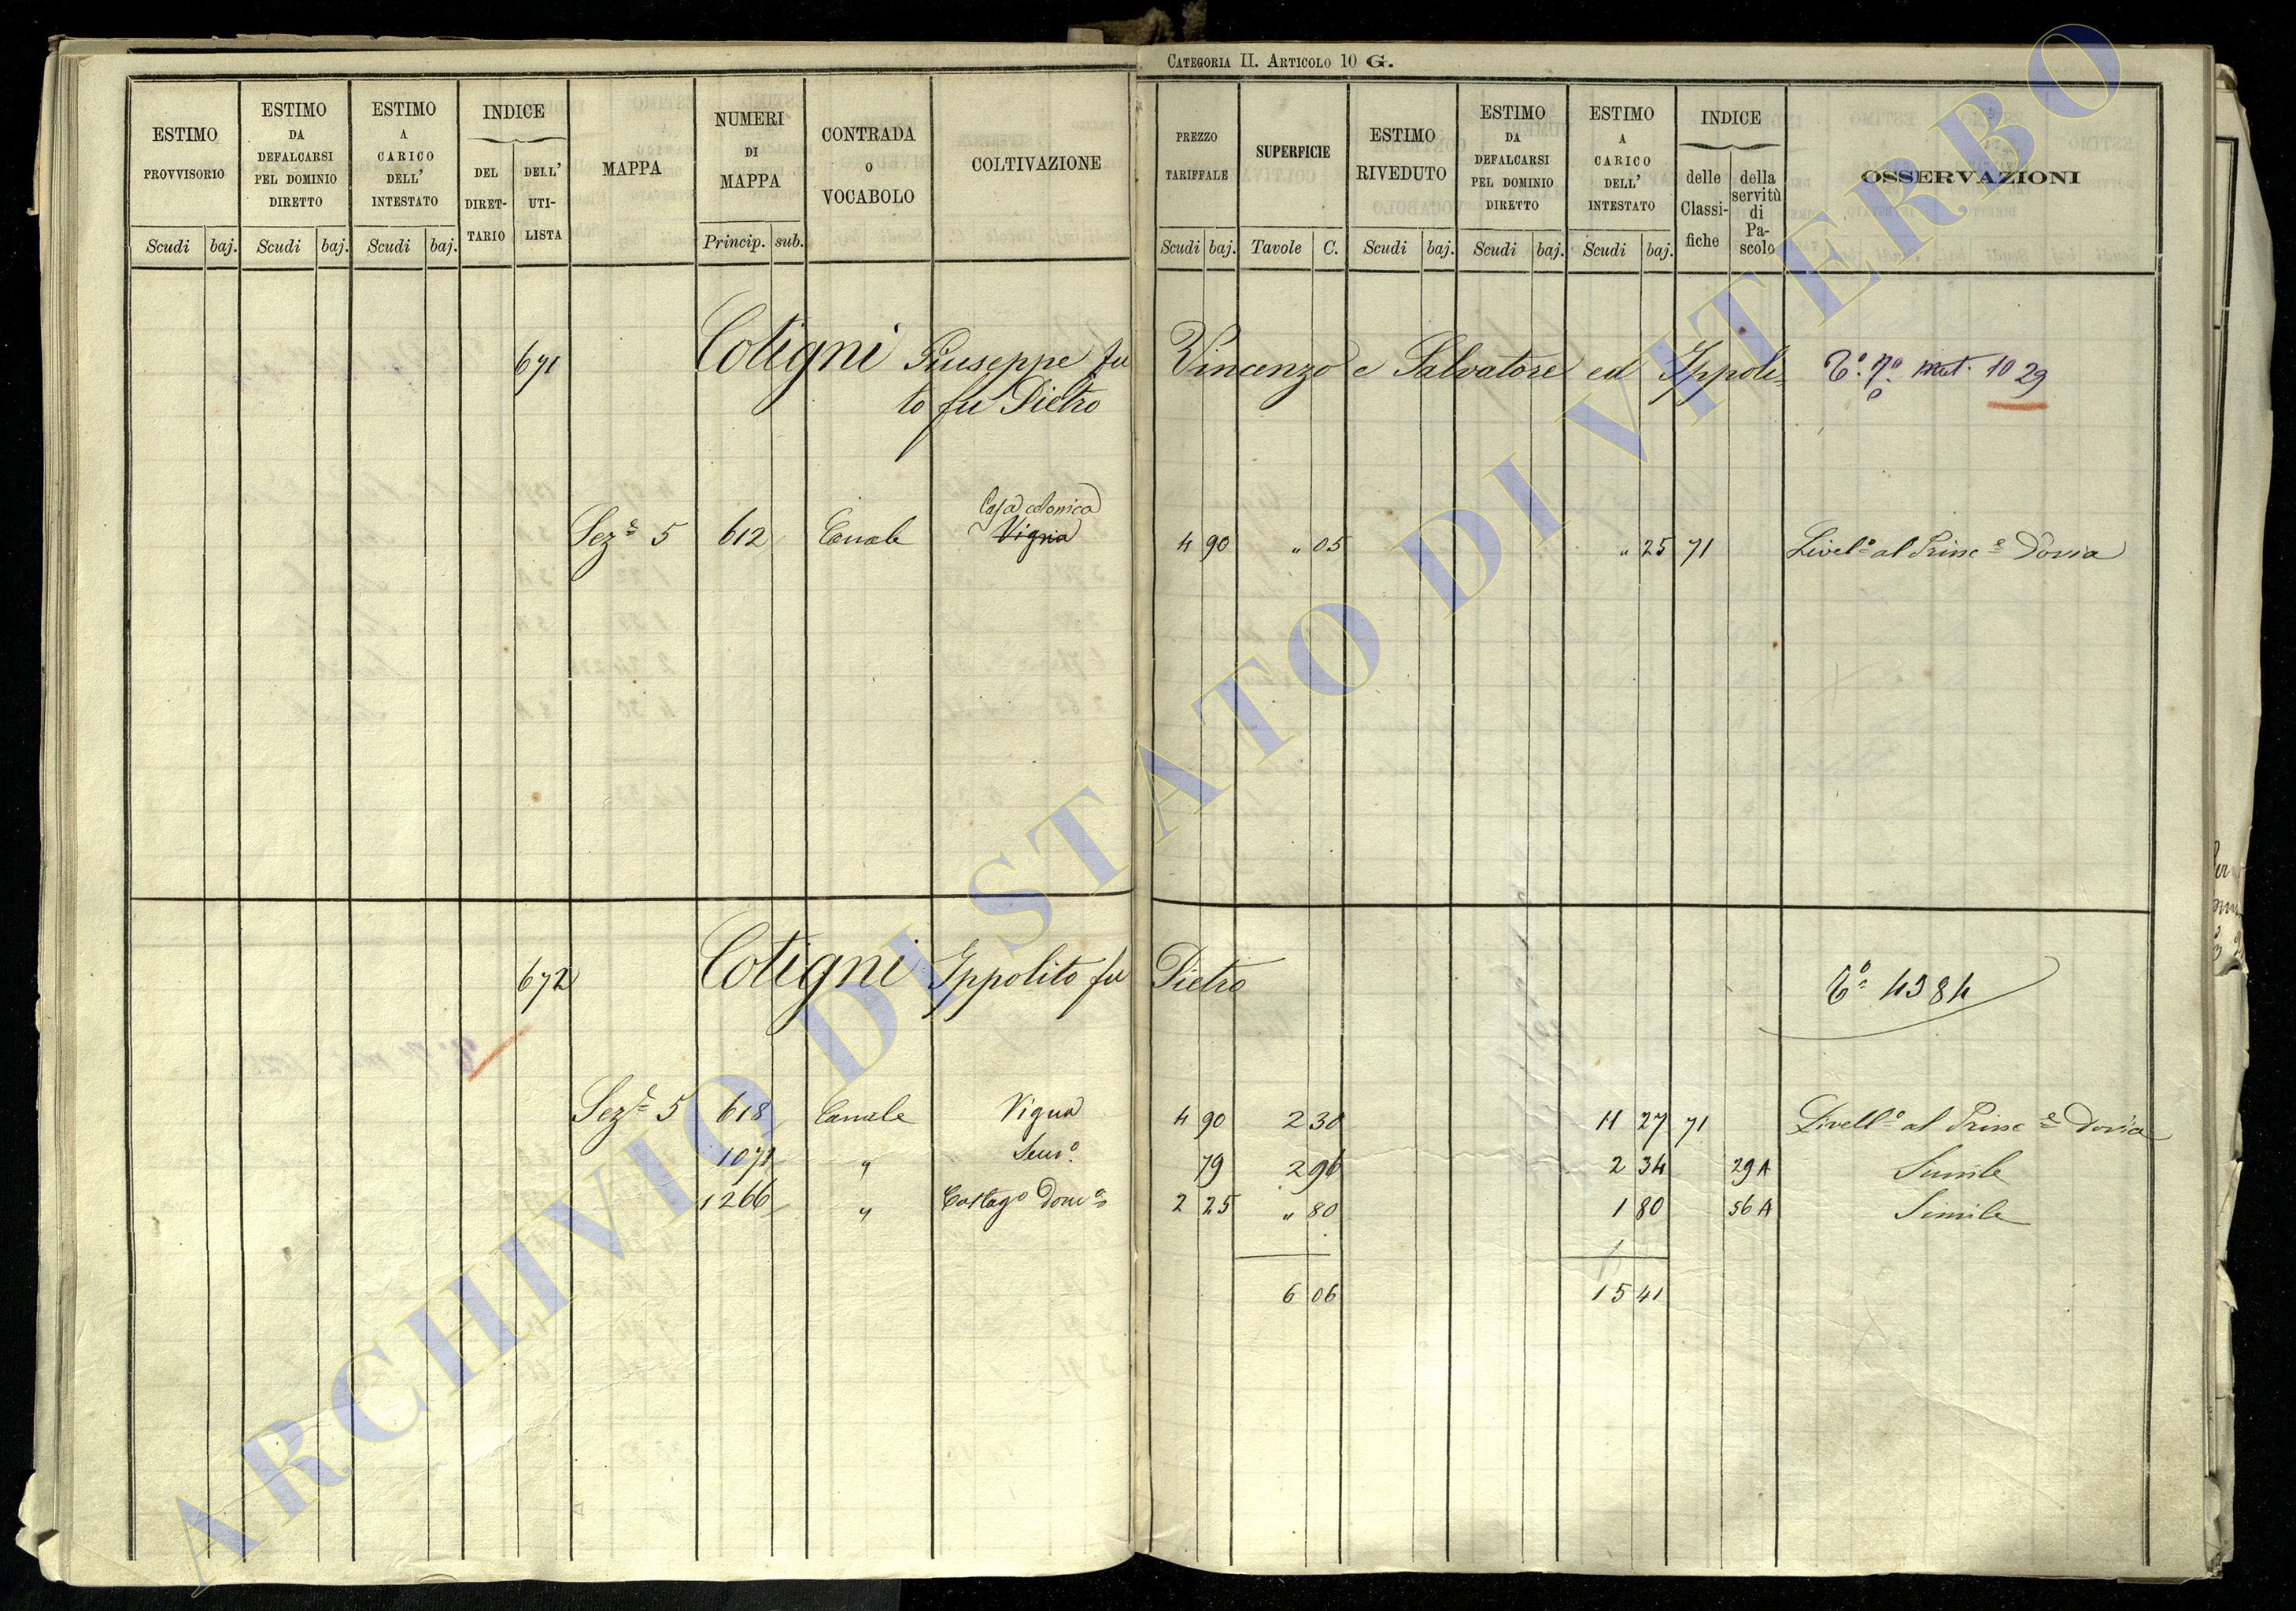 CATEGORIA II. ARTICOLO 10 G.
ESTIMO PROVVISORIO
Scudi baj.
ESTIMO DA DEFALCARSI PEL DOMINIO DIRETTO
Scudi baj.
ESTIMO A CARICO DELL' INTESTATO
Scudi baj.
INDICE
DEL DIRET-TARIO
DELL' UTI-LISTA
MAPPA
NUMERI DI MAPPA
Princip. sub.
CONTRADA O VOCABOLO
COLTIVAZIONE
PREZZO TARIFFALE
Scudi baj.
SUPERFICIE
Tavole C.
ESTIMO RIVEDUTO
Scudi baj.
ESTIMO DA DEFALCARSI PEL DOMINIO DIRETTO
Scudi baj.
ESTIMO A CARICO DELL' INTESTATO
Scudi baj.
INDICE
delle Classi-fiche
della servitù di Pa-scolo
OSSERVAZIONI
671 Cotigni Giuseppe fu Vincenzo e Salvatore ed Ippoli= Tº. 7º. mat. 1029
to fu Pietro
Casa colonica
Sez.e 5 612 Canale Vigna 4 90 " 05 " 25 71 Livelº al Princ.e Doria
672 Cotigni Ippolito fu Pietro Tº. 4384
Sez.e 5 618 Canale Vigna 4 90 2 30 11 27 71 Livellº al Princ.e Doria
1071 " Semº. 79 2 96 2 34 29 A Simile
1266 " Castagº Domº 2 25 " 80 1 80 56 A Simile
6 06 15 41
ARCHIVIO DI STATO DI VITERBO